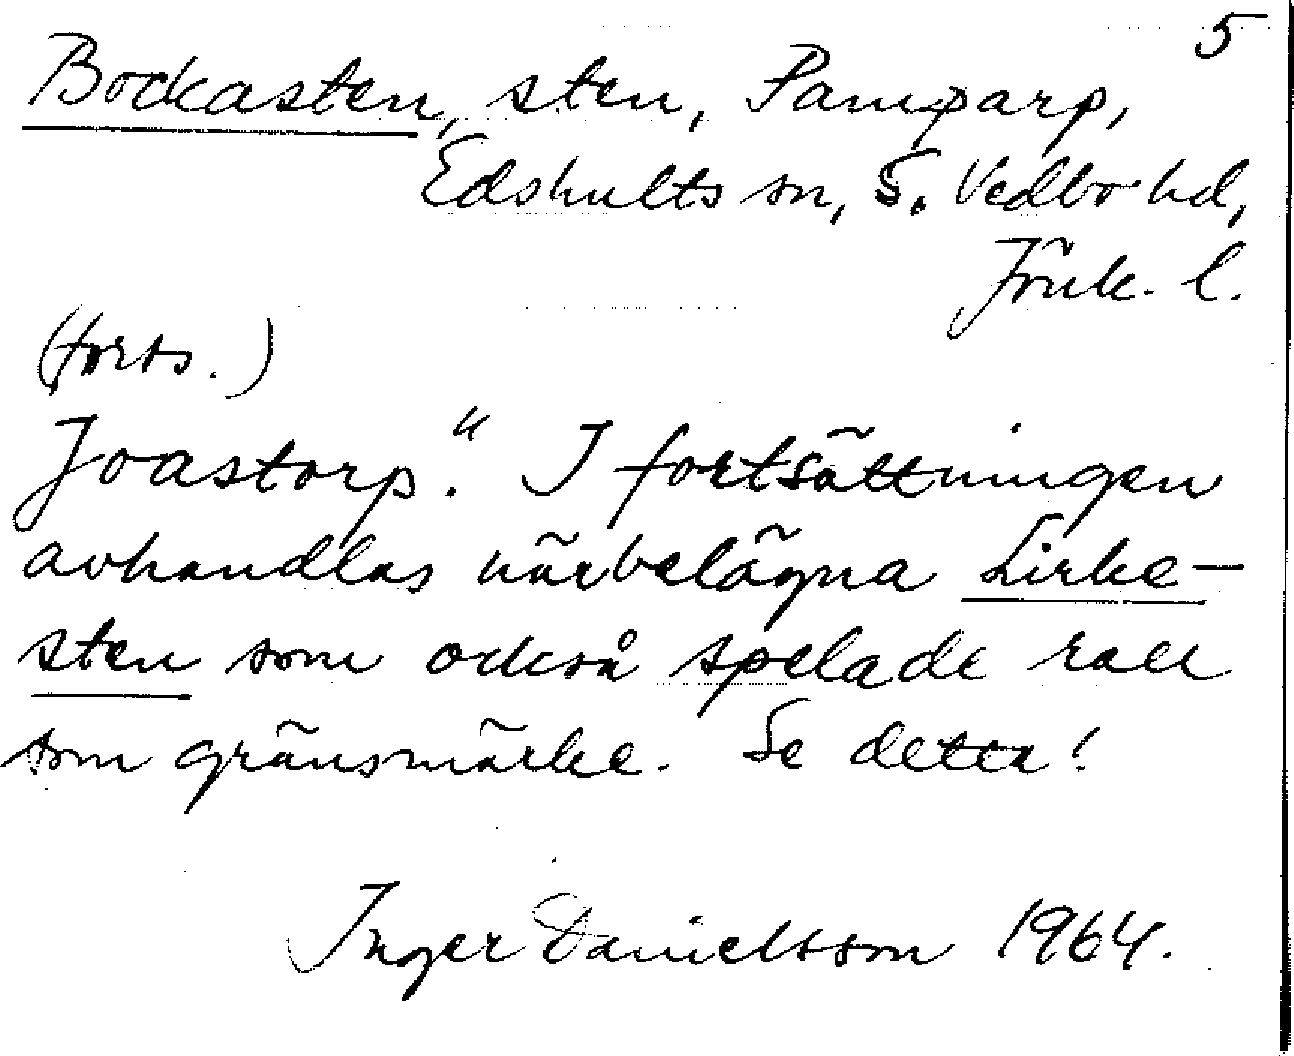 5
Bockasten, sten, Pamparp,
Edshults sn, S. Vedbo hd,
Jönk. l.
(forts.)
Joastorp." I fortsättningen
avhandlas närbelägna Lirke-
sten som också spelade roll
som gränsmärke. Se detta!
Inger Danielsson 1964.